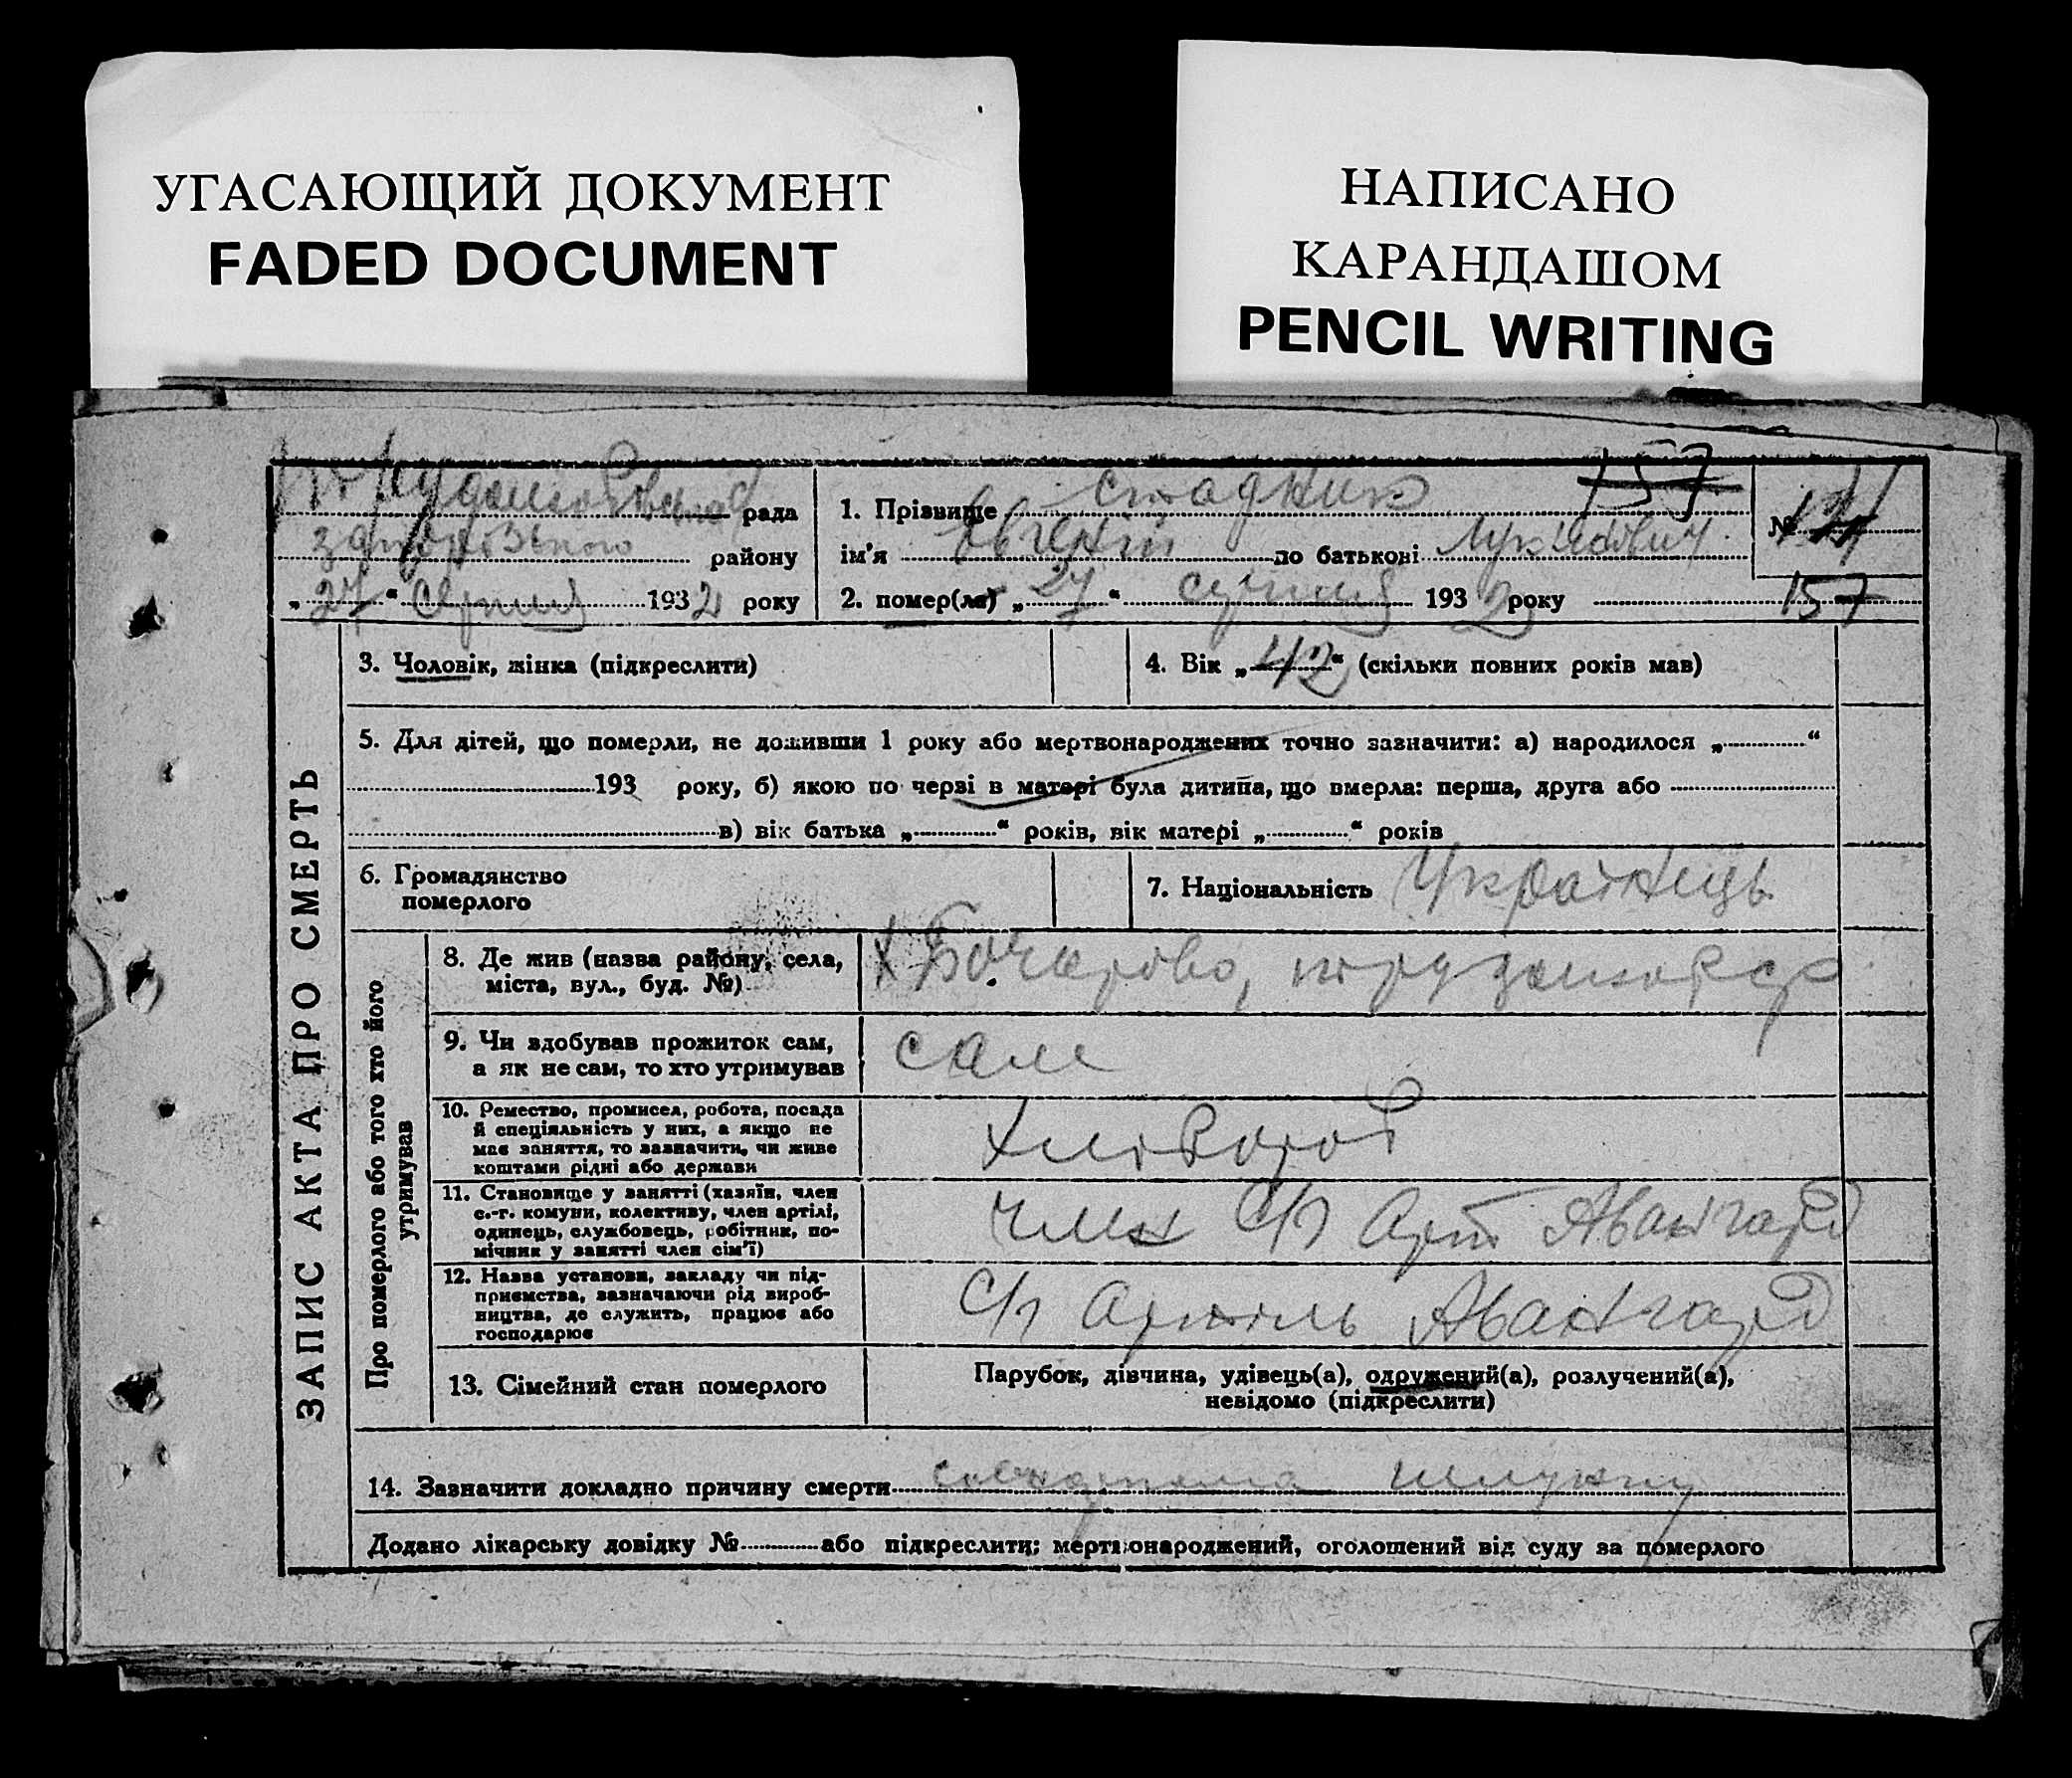 УГАСАЮЩИЙ ДОКУМЕНТ
FADED DOCUMENT
НАПИСАНО
КАРАНДАШОМ
PENCIL WRITING
157
рада
району
„27“ Серпня 1932 року
1. Прізвище Стадник
ім'я Євгеній по батькові Лукьянович
2. помер(ла) „27“ серпня 1932 року
№
157
ЗАПИС АКТА ПРО СМЕРТЬ
3. Чоловік, жінка (підкреслити)
4. Вік „42“ (скільки повних років мав)
5. Для дітей, що померли, не доживши 1 року або мертвонароджених точно зазначити: а) народилося „ “
193 року, б) якою по черзі в матері була дитина, що вмерла: перша, друга або
в) вік батька „ “ років, вік матері „ “ років
6. Громадянство
померлого
7. Національність Українець
Про померлого або того хто його
утримував
8. Де жив (назва району, села,
міста, вул., буд. №)
х Бочарово,
9. Чи здобував прожиток сам,
а як не сам, то хто утримував
сам
10. Ремество, промисел, робота, посада
й спеціяльність у них, а якщо не
має заняття, то зазначити, чи живе
коштами рідні або держави
Хлібороб
11. Становище у занятті (хазяїн, член
с.-г. комуни, колективу, член артілі,
одинець, службовець, робітник, по-
мічник у занятті член сім'ї)
член С/г Арт Авангард
12. Назва установи, закладу чи під-
приємства, зазначаючи рід вироб-
ництва, де служить, працює або
господарює
С/г Артіль Авангард
13. Сімейний стан померлого
Парубок, дівчина, удівець(а), одружений(а), розлучений(а),
невідомо (підкреслити)
14. Зазначити докладно причину смерти
Додано лікарську довідку № або підкреслити; мертвонароджений, оголошений від суду за померлого